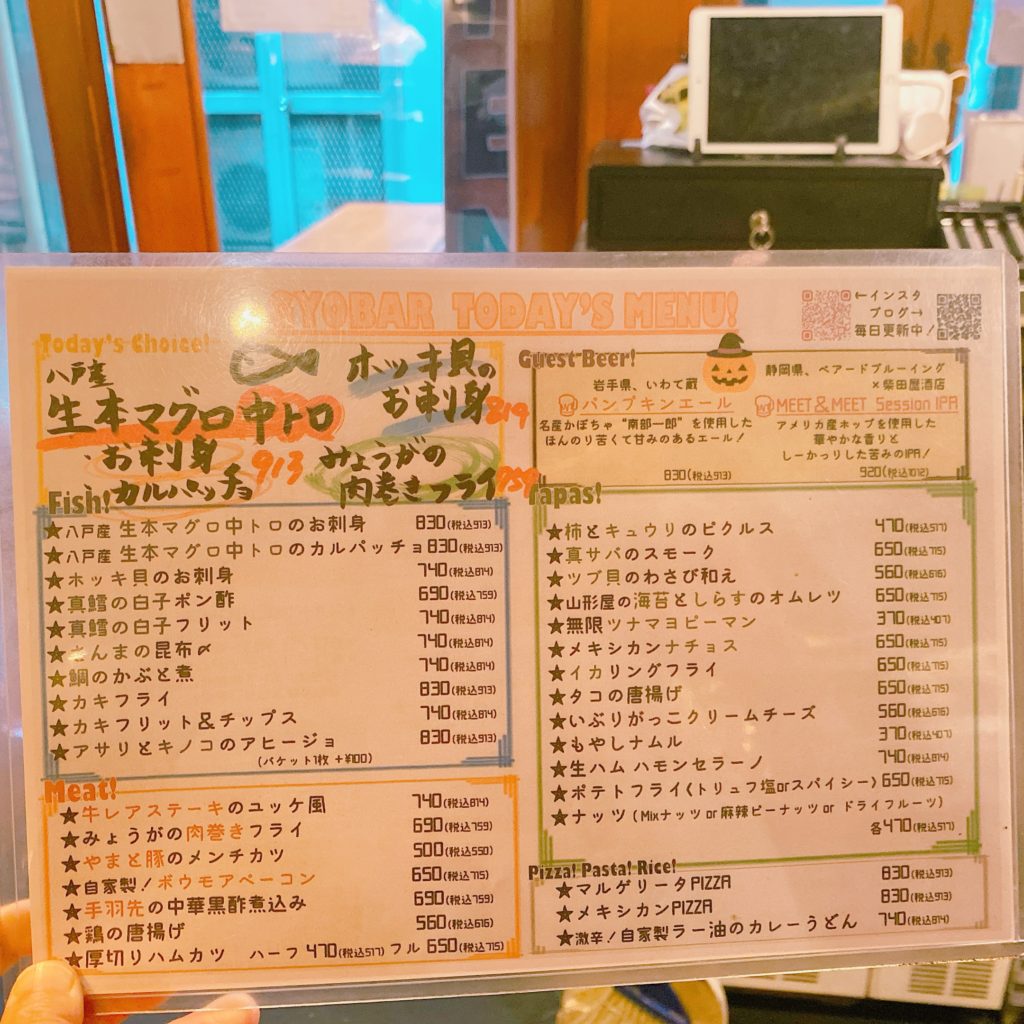 GYOBAR TODAY'S MENU!
←インスタ
ブログ→
毎日更新中！
Today's Choice!
八戸産
生本マグロ中トロ
・お刺身
カルパッチョ
913
ホッキ貝の
お刺身
819
みょうがの
肉巻きフライ
759
Guest Beer!
岩手県、いわて蔵
パンプキンエール
名産かぼちゃ“南部一郎”を使用した
ほんのり苦くて甘みのあるエール！
830(税込913)
静岡県、ベアードブルーイング
×柴田屋酒店
MEET&MEET Session IPA
アメリカ産ホップを使用した
華やかな香りと
しーかっりした苦みのIPA！
920(税込1012)
Fish!
★八戸産 生本マグロ中トロのお刺身 830(税込913)
★八戸産 生本マグロ中トロのカルパッチョ 830(税込913)
★ホッキ貝のお刺身 740(税込814)
★真鱈の白子ポン酢 690(税込759)
★真鱈の白子フリット 740(税込814)
★さんまの昆布〆 740(税込814)
★鯛のかぶと煮 740(税込814)
★カキフライ 830(税込913)
★カキフリット＆チップス 740(税込814)
★アサリとキノコのアヒージョ 830(税込913)
(バケット1枚 +¥100)
Meat!
★牛レアステーキのユッケ風 740(税込814)
★みょうがの肉巻きフライ 690(税込759)
★やまと豚のメンチカツ 500(税込550)
★自家製！ボウモアベーコン 650(税込715)
★手羽先の中華黒酢煮込み 690(税込759)
★鶏の唐揚げ 560(税込616)
★厚切りハムカツ ハーフ 470(税込517) フル 650(税込715)
Tapas!
★柿とキュウリのピクルス 470(税込517)
★真サバのスモーク 650(税込715)
★ツブ貝のわさび和え 560(税込616)
★山形屋の海苔としらすのオムレツ 650(税込715)
★無限ツナマヨピーマン 370(税込407)
★メキシカンナチョス 650(税込715)
★イカリングフライ 650(税込715)
★タコの唐揚げ 650(税込715)
★いぶりがっこクリームチーズ 560(税込616)
★もやしナムル 370(税込407)
★生ハム ハモンセラーノ 740(税込814)
★ポテトフライ(トリュフ塩orスパイシー) 650(税込715)
★ナッツ(Mixナッツ or 麻辣ピーナッツ or ドライフルーツ)
各470(税込517)
Pizza! Pasta! Rice!
★マルゲリータPIZZA 830(税込913)
★メキシカンPIZZA 830(税込913)
★激辛！自家製ラー油のカレーうどん 740(税込814)